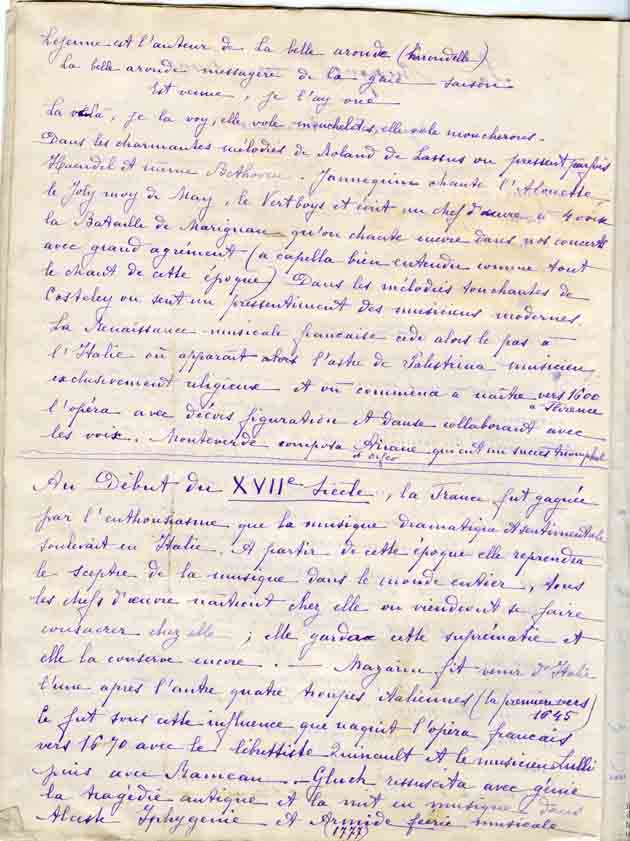 Lejeune est l'auteur de La belle aronde (hirondelle)
La belle aronde messagère de la gaie saison
Est venue, je l'ay ouë
La voilà, je la voy, elle vole mouchelètes, elle vole moucherons.
Dans les charmantes mélodies de Roland de Lassus on pressent parfois
Haendel et même Bethoven. Jannequin chante l'Alouette
le Joly moy de May, le Vertboys et écrit un chef d'œuvre à 4 voix
la Bataille de Marignan qu'on chante encore dans nos concerts
avec grand agrément (a capella bien entendu comme tout
le chant de cette époque) Dans les mélodies touchantes de
Costeley on sent un pressentiment des musiciens modernes.
La Renaissance musicale française cède alors le pas à
l'Italie où apparaît alors l'astre de Palestrina musicien
exclusivement religieux et où commença à naître vers 1600
à Florence
l'opéra avec décors figuration et danse collaborant avec
les voix. Monteverde composa Ariane qui eut un succès triomphal
et orfeo
Au Début du XVIIe Siècle, la France fut gagnée
par l'enthousiasme que la musique dramatique et sentimentale
soulevait en Italie. A partir de cette époque elle reprendra
le sceptre de la musique dans le monde entier, tous
les chefs d'œuvre naîtront chez elle ou viendront se faire
consacrer chez elle ; elle garda cette suprématie et
elle la conserve encore. — Mazarin fit venir d'Italie
l'une après l'autre quatre troupes italiennes (la première vers
1645)
Ce fut sous cette influence que naquit l'opéra français
vers 1670 avec le librettiste Quinault et le musicien Lulli
puis avec Rameau. - Gluck ressuscita avec génie
la tragédie antique et la mit en musique dans
Alceste Iphygénie et Armide féerie musicale
(1777)